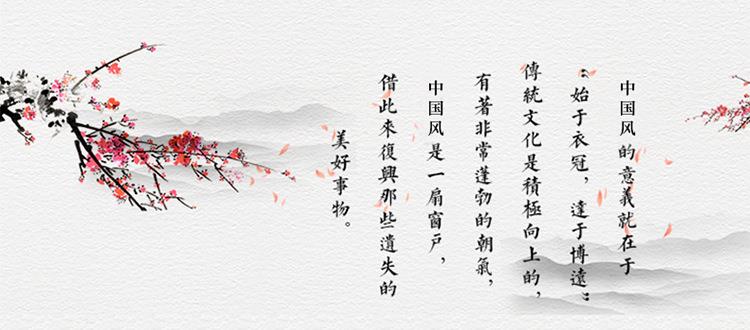 中国风的意義就在于
“始于衣冠，達于博遠”
傳統文化是積極向上的，
有著非常蓬勃的朝氣，
中国风是一扇窗戶，
借此來復興那些遺失的
美好事物。